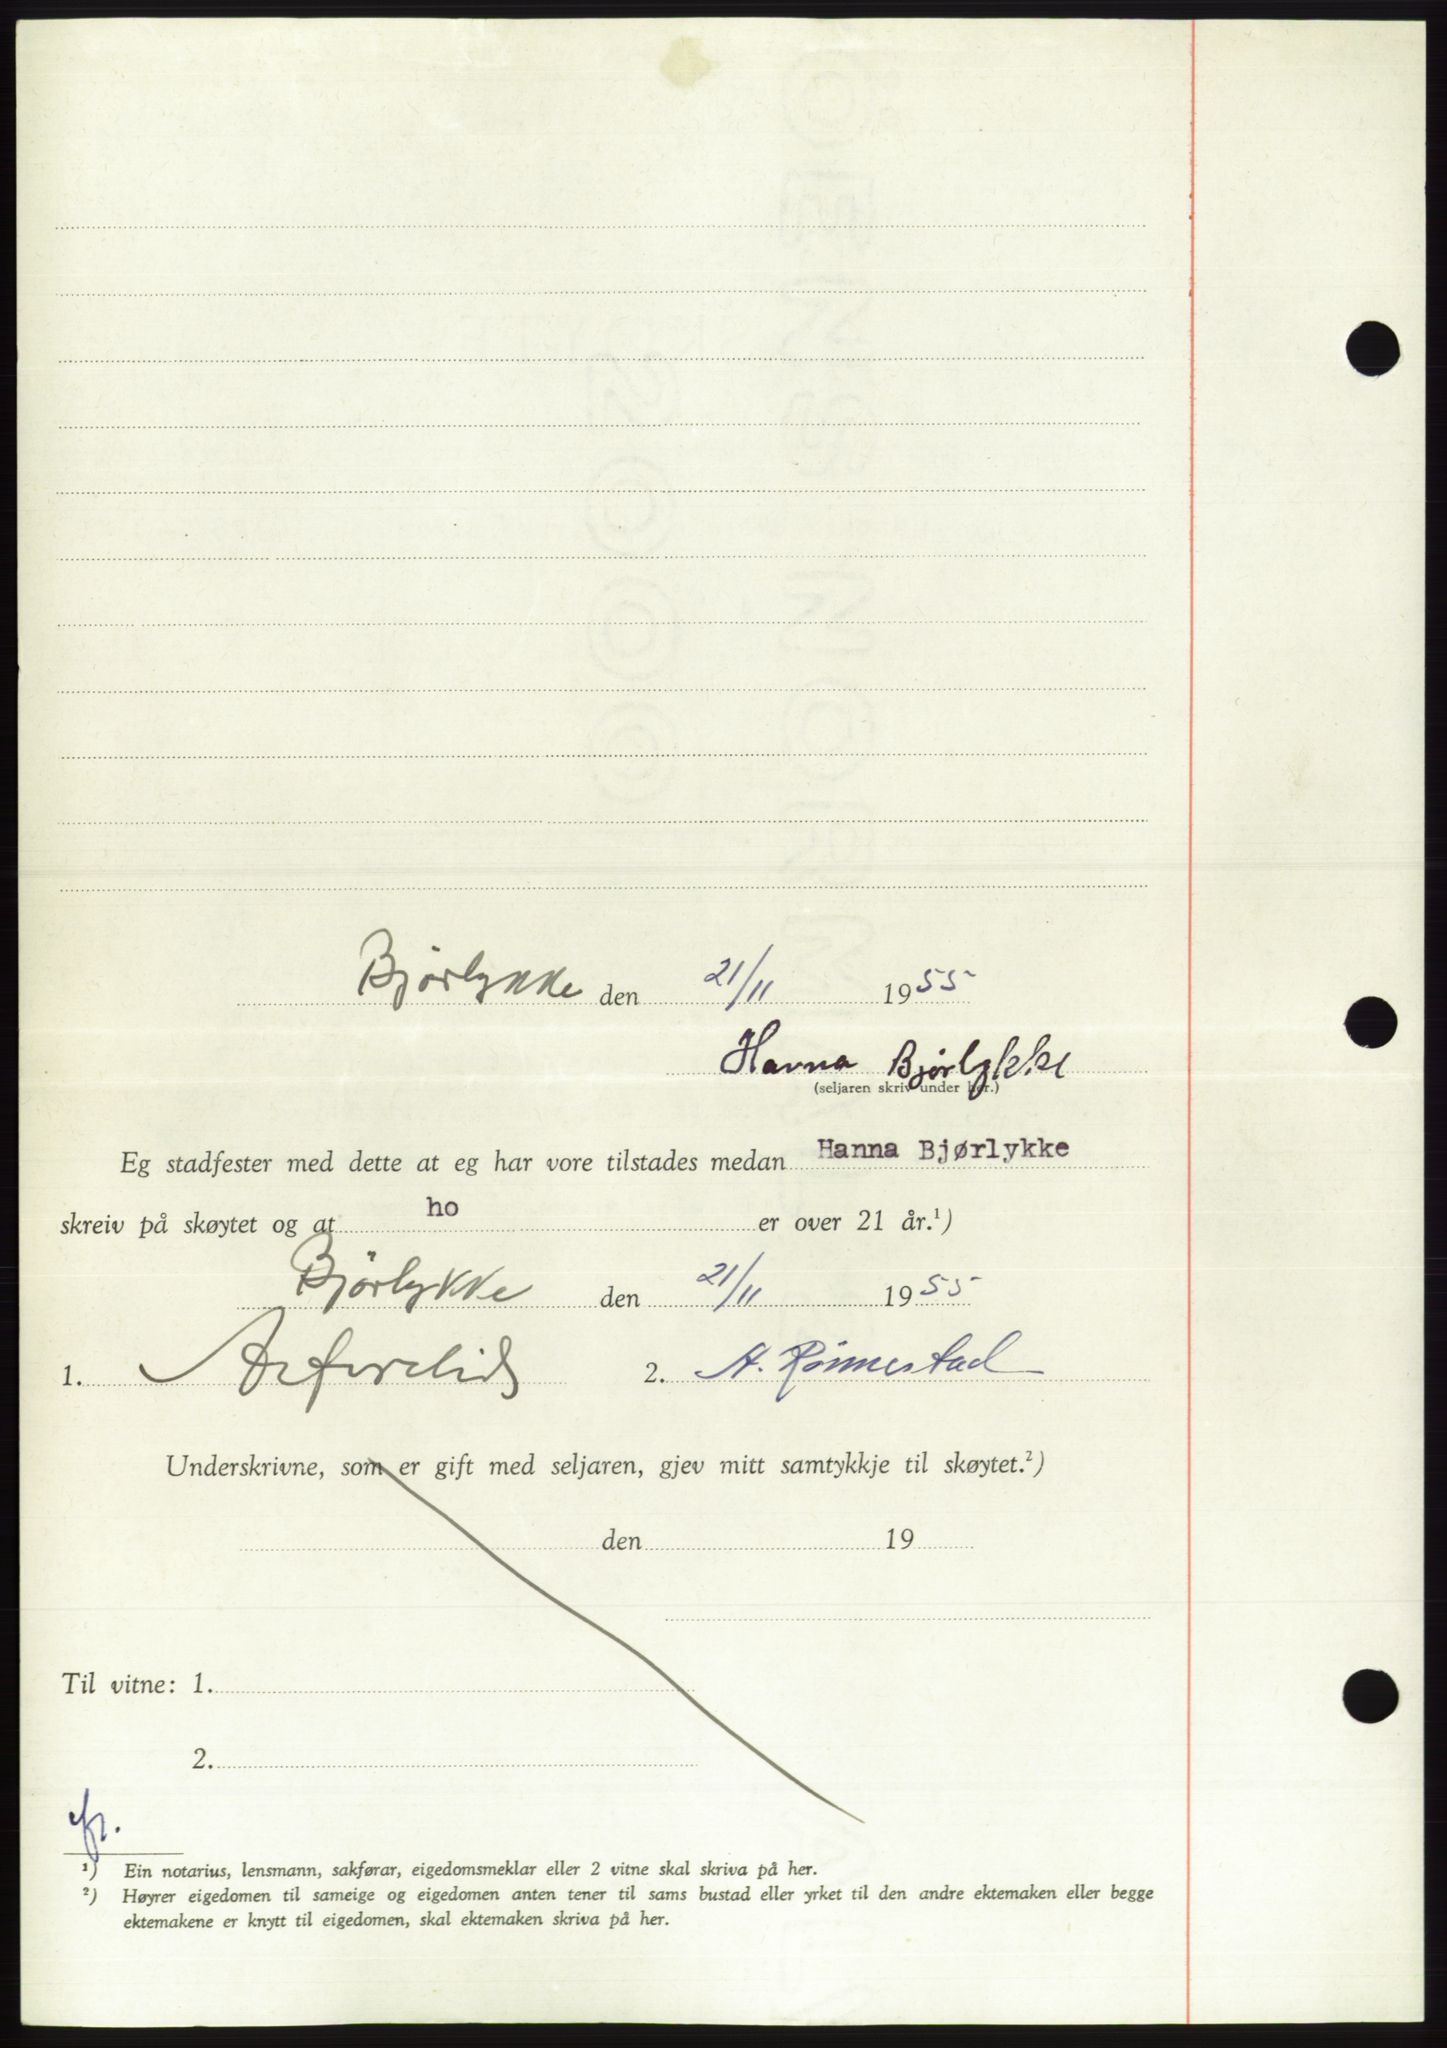 Bjørlykke den 21/11 1955
Hanna Bjørlykke
(seljaren skriv under her.)
Eg stadfester med dette at eg har vore tilstades medan Hanna Bjørlykke
skreiv på skøytet og at ho er over 21 år.¹)
Bjørlykke den 21/11 1955
1. 2. A. Rønnestad
Underskrivne, som er gift med seljaren, gjev mitt samtykkje til skøytet.²)
den 19
Til vitne: 1.
2.
¹) Ein notarius, lensmann, sakførar, eigedomsmeklar eller 2 vitne skal skriva på her.
²) Høyrer eigedomen til sameige og eigedomen anten tener til sams bustad eller yrket til den andre ektemaken eller begge
ektemakene er knytt til eigedomen, skal ektemaken skriva på her.